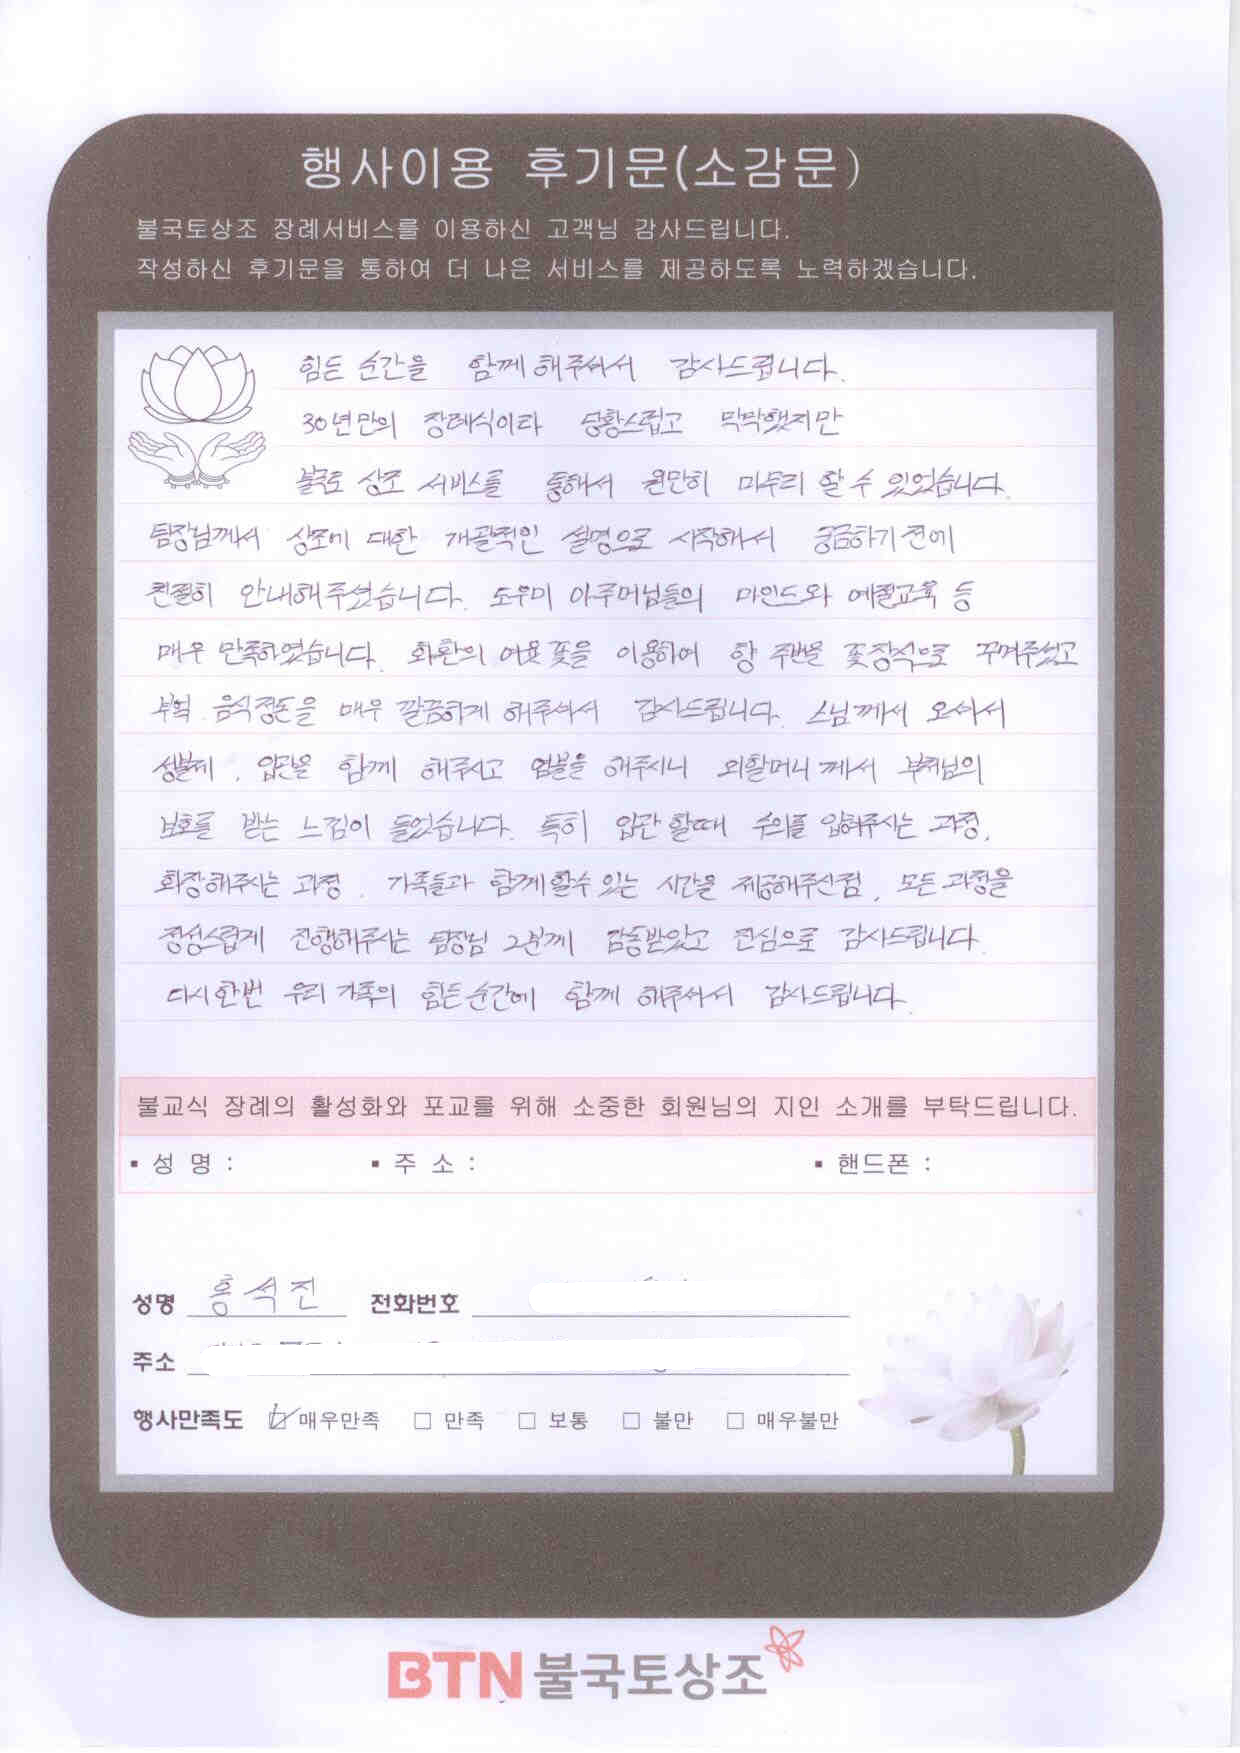 행사이용 후기문(소감문)
불국토상조 장례서비스를 이용하신 고객님 감사드립니다.
작성하신 후기문을 통하여 더 나은 서비스를 제공하도록 노력하겠습니다.
힘든 순간을 함께 해주셔서 감사드립니다.
30년만의 장례식이라 당황스럽고 막막했지만
불국토 상조 서비스를 통해서 원만히 마무리 할 수 있었습니다.
팀장님께서 상조에 대한 개괄적인 설명으로 시작해서 궁금하기 전에
친절히 안내해주셨습니다. 도우미 아주머님들의 마인드와 예절교육 등
매우 만족하였습니다. 화환의 여분 꽃을 이용하여 향 주변을 꽃장식으로 꾸며주셨고
부엌 음식정돈을 매우 깔끔하게 해주셔서 감사드립니다. 스님께서 오셔서
성불제, 입관을 함께 해주시고 염불을 해주시니 외할머니께서 부처님의
보호를 받는 느낌이 들었습니다. 특히 입관 할때 수의를 입혀주시는 과정,
화장해주시는 과정, 가족들과 함께 할수 있는 시간을 제공해주신점, 모든 과정을
정성스럽게 진행해주시는 팀장님 2분께 감동받았고 진심으로 감사드립니다.
다시 한번 우리 가족의 힘든 순간에 함께 해주셔서 감사드립니다.
불교식 장례의 활성화와 포교를 위해 소중한 회원님의 지인 소개를 부탁드립니다.
▪ 성 명 : ▪ 주 소 : ▪ 핸드폰 :
성명 홍석진 전화번호
주소
행사만족도 ☑ 매우만족 □ 만족 □ 보통 □ 불만 □ 매우불만
BTN 불국토상조